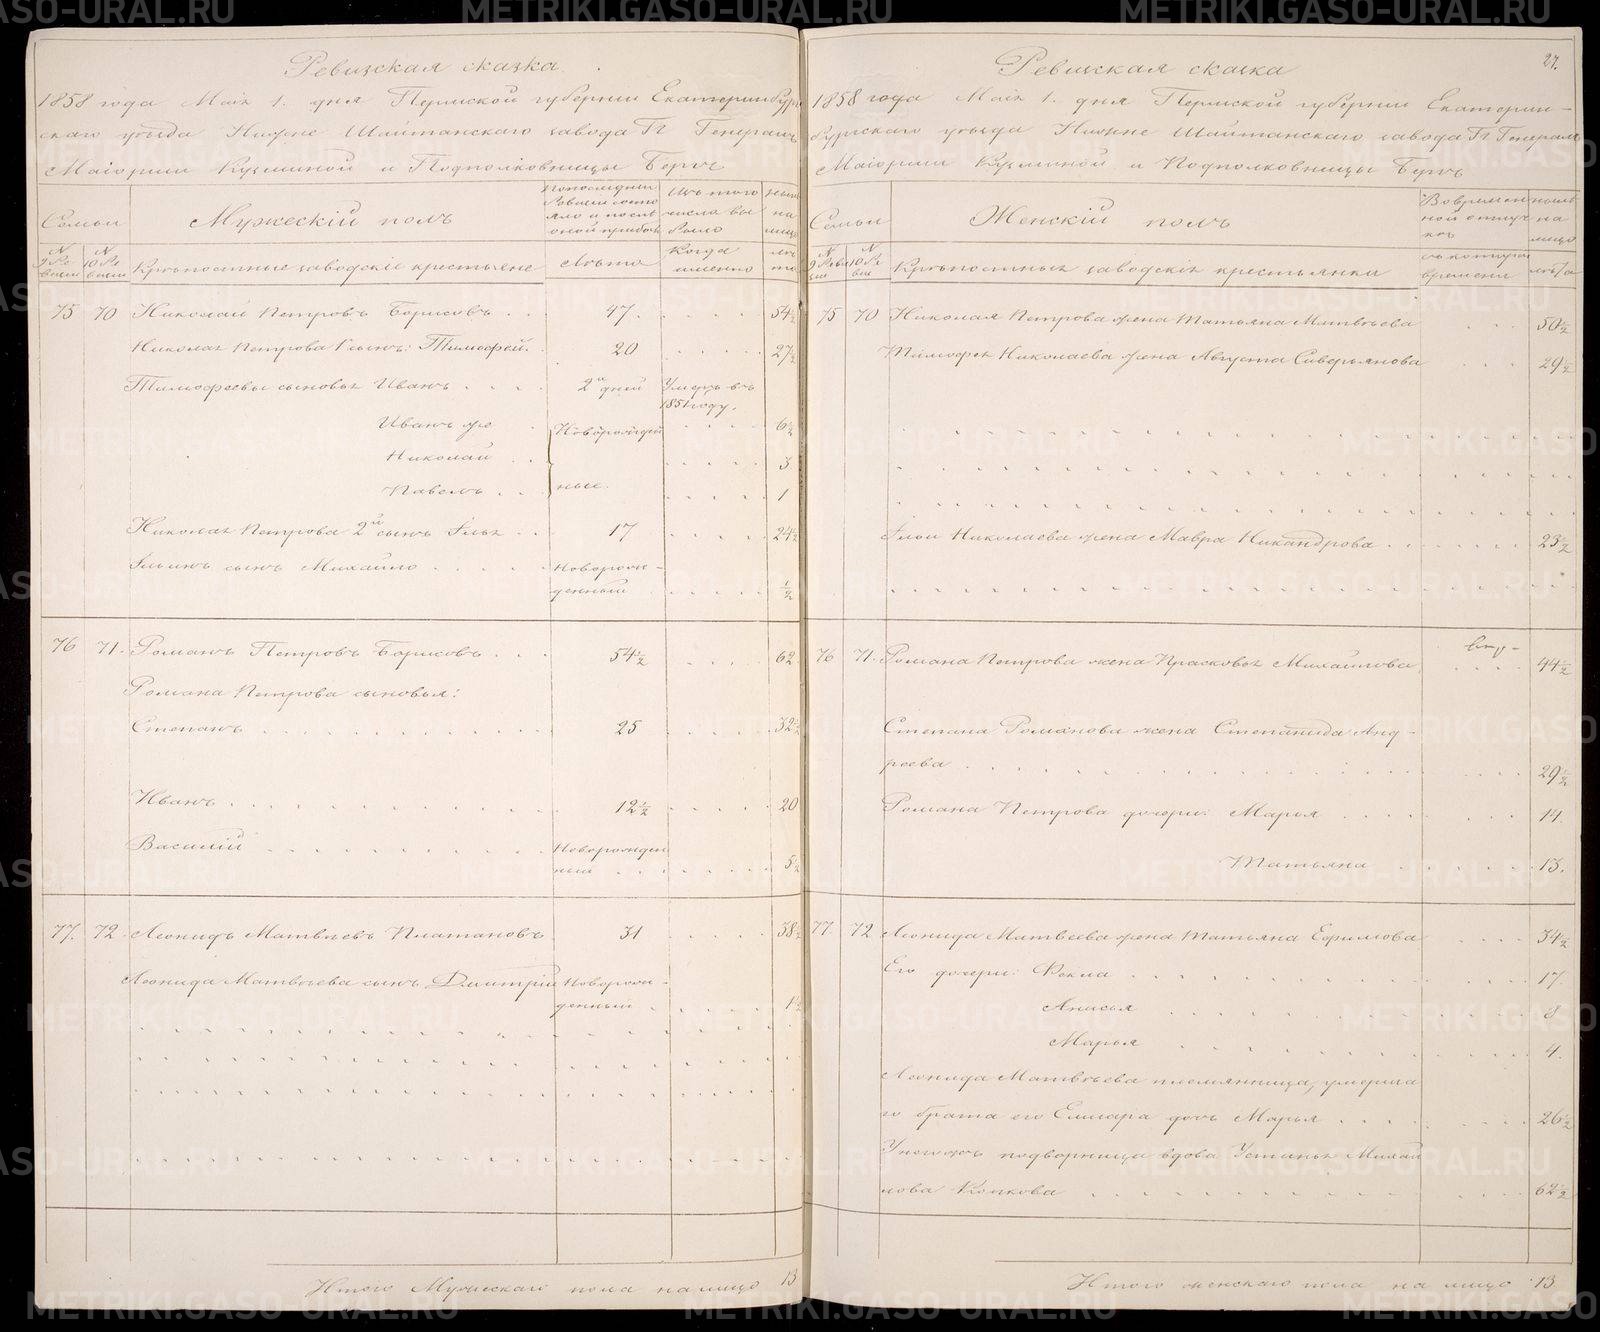 Ревизская сказка
1858 года Маія 1. дня Пермской губерніи Екатеринбург
скаго уезда Нижне Шайтанскаго завода Гг Генералъ
Маіорши Кузьминой и Подполковницы Бергъ
Семьи
Мужескій полъ
По последней Ревизіи состояло и после оной прибыло
Изъ того числа выбыло
Ныне на лицо
№ 9 Ревизіи
№ 10 Ревизіи
Крепостные заводскіе крестьяне
Лета
Когда именно
лета
75 70 Николай Петровъ Борисовъ 47. 54½
Николая Петрова 1 сынъ: Тимофей. 20 27½
Тимофеевы сыновья Иванъ 2й дней Умеръ въ 1851 году.
Иванъ же Новорожден 6½
Николай 3
Павелъ ные. 1
Николая Петрова 2й сынъ Илья 17 24½
Ильинъ сынъ Михайло Новорожденный ½
76 71. Романъ Петровъ Борисовъ 54½ 62
Романа Петрова сыновья:
Степанъ 25 32½
Иванъ 12½ 20
Василій Новорожденный 5½
77. 72 Леонидъ Матвеевъ Платановъ 31 38½
Леонида Матвеева сынъ Дмитрій Новорожденный 1½
Итого Мужескаго пола на лицо 13
27.
Ревизская сказка
1858 года Маія 1. дня Пермской губерніи Екатерин-
бургскаго уезда Нижне Шайтанскаго завода Гг Генералъ
Маіорши Кузьминой и Подполковницы Бергъ
Семьи
Женскій полъ
Во временной отлучке
ныне на лицо
№ 9 Ревизіи
№ 10 Ревизіи
Крепостныя заводскія крестьянки
съ котораго времени
лета
75 70 Николая Петрова жена Татьяна Матвеева 50½
Тимофея Николаева жена Августа Сиверьянова 29½
Ильи Николаева жена Мавра Никандрова 23½
76 71. Романа Петрова жена Прасковья Михайлова 44½
Степана Романова жена Степанида Анд-
реева 29½
Романа Петрова дочери: Марья 14.
Татьяна 13.
77. 72 Леонида Матвеева жена Татьяна Ефимова 34½
Его дочери: Фекла 17.
Анисья 8
Марья 4.
Леонида Матвеева племянница, умерша
го брата его Елизара дочь Марья 26½
У него жъ подворница вдова Устинья Михай
лова Копкова 62½
Итого женскаго пола на лицо 13